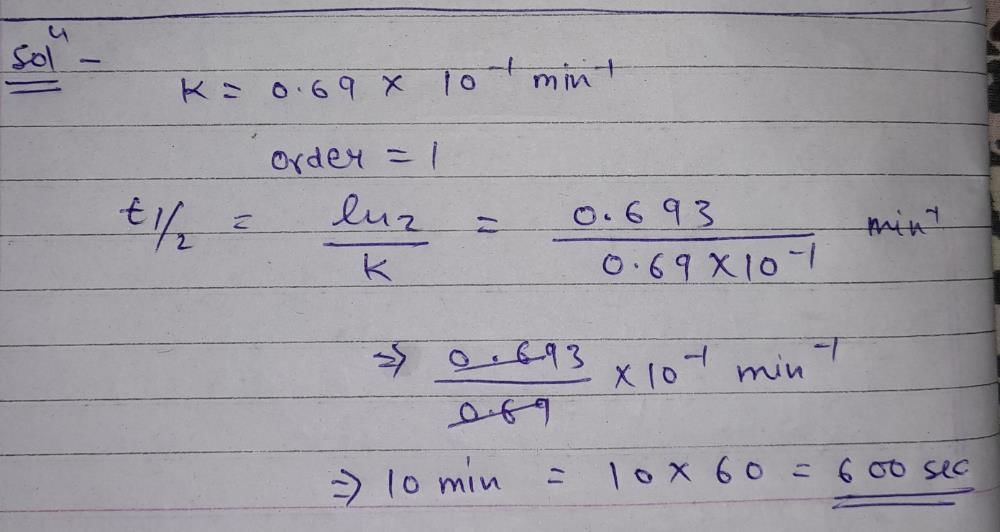 Solⁿ -
K = 0.69 × 10⁻¹ min⁻¹
order = 1
t1/2 = ln2/K = 0.693/0.69×10⁻¹ min⁻¹
⇒ 0.693/0.69 ×10⁻¹ min⁻¹
⇒ 10 min = 10 × 60 = 600 sec